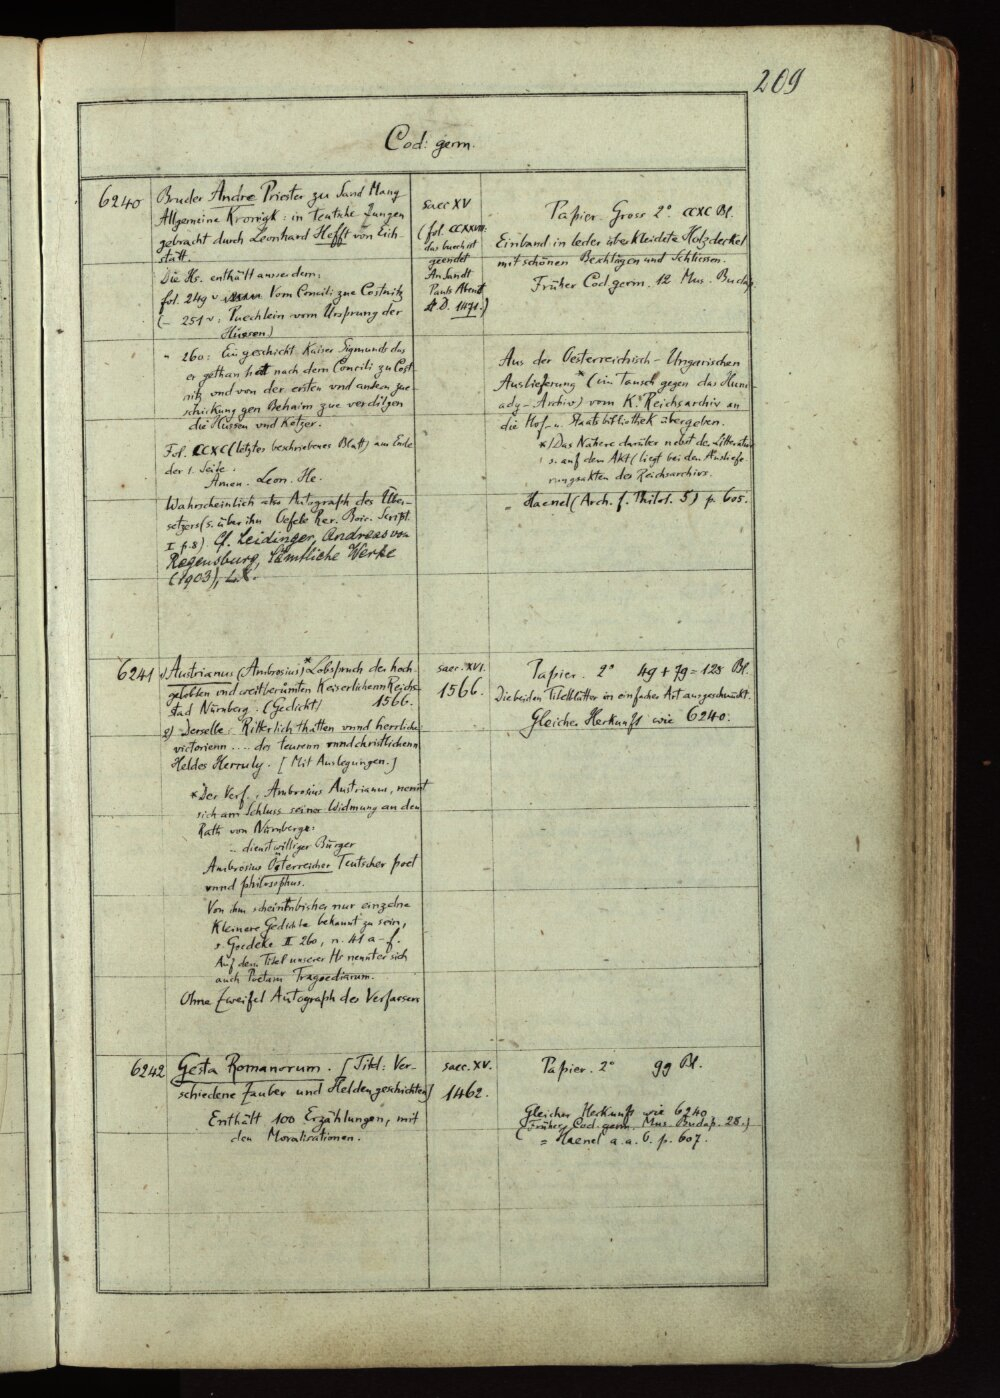 209
Cod: germ.
6240
Bruder Andre Priester zu Sand Mang
Allgemeine Kronigk: in Teutzhe Zungen
gebracht durch Leonhard Hefft von Eich-
stätt.
Die Hs. enthält ausserdem:
fol. 249 v Vom Concili zue Costnitz
(– 251 v: Puechlein vom Ursprung der
Hussen)
" 260: Ein geschicht Kaiser Sigmunds das
er gethan hat nach dem Concili zu Cost-
nitz vnd von der ersten vnd andern zue-
schickung gen Behaim zue verdilgen
die Hussen vnd Ketzer.
Fol. CCXC (letztes beschriebenes Blatt) am Ende
der 1. Seite.
Amen. Leon. He.
Wahrscheinlich also Autograph des Über-
setzers (s. über ihn Oefele Rer. Boic. Script.
I p. 8) Cf. Leidinger, Andreas von
Regensburg, Sämtliche Werke
(1903), L.X.
saec XV
(fol. CCXXVIII:
das buech ist
geendet
An Sandt
Pauls Abent
A.D. 1471.)
Papier. Gross 2° CCXC Bl.
Einband in leder überkleidete Holzdeckel
mit schönen Beschlägen und Schliessen.
Früher Cod. germ. 12 Mus. Budap.
Aus der Oesterreichisch-Ungarischen
Auslieferung * (im Tausch gegen das Huni-
ady-Archiv) vom K. Reichsarchiv an
die Hof- u. Staatsbibliothek übergeben.
*) Das Nähere darüber nebst der Litteratur
s. auf dem Akt (liegt bei den Ausliefe-
rungsakten des Reichsarchivs.
Haenel (Arch. f. Philol. 5) p. 605.
6241
1) Austrianus (Ambrosius)* Lobspruch der hoch
gelobten vnd weit berümten Keiserlichenn Reichs-
stad Nürnberg. (Gedicht) 1566.
2) Derselbe: Ritterlich thatten vnnd herrliche
victorienn .... des teurenn vnnd christlichenn
Heldes Herculy. [Mit Auslegungen.]
* Der Verf., Ambrosius Austrianus, nennt
sich am Schluss seiner Widmung an den
Rath von Nürnberg:
.. dienstwilliger Bürger
Ambrosius Österreicher Teutscher poet
vnnd philosophus.
Von ihm scheint bisher nur einzelne
kleinere Gedichte bekannt zu sein,
s. Goedeke II 260, n. 41 a-f.
Auf dem Titel unserer Hs nennt er sich
auch Poetam Tragoediarum.
Ohne Zweifel Autograph des Verfassers
saec. XVI.
1566.
Papier. 2° 49 + 79 = 128 Bl.
Die beiden Titelblätter in einfacher Art ausgeschmückt.
Gleicher Herkunft wie 6240.
6242
Gesta Romanorum. [Titel: Ver-
schiedene Zauber und Heldengeschichten]
Enthält 100 Erzählungen, mit
den Moralisationen.
saec. XV.
1462.
Papier. 2° 99 Bl.
Gleicher Herkunft wie 6240
(Früher Cod. germ. Mus. Budap. 28.)
= Haenel a. a. O. p. 607.